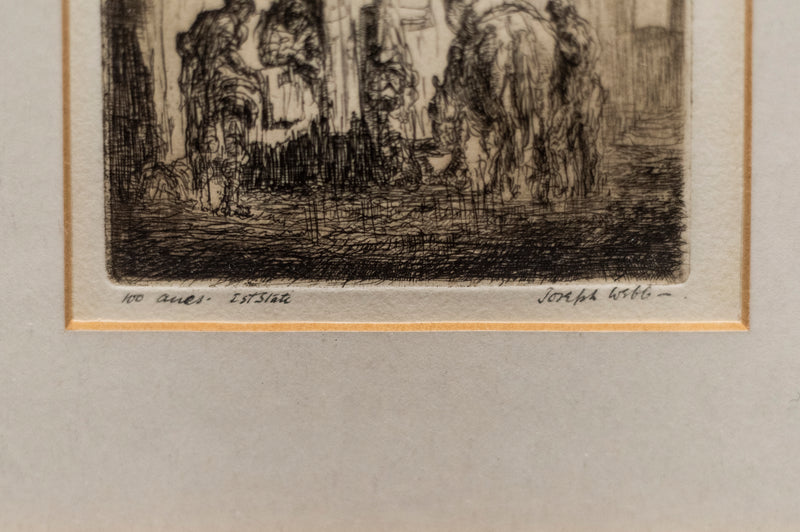 100 aues. Ist State
Joseph Webb –.